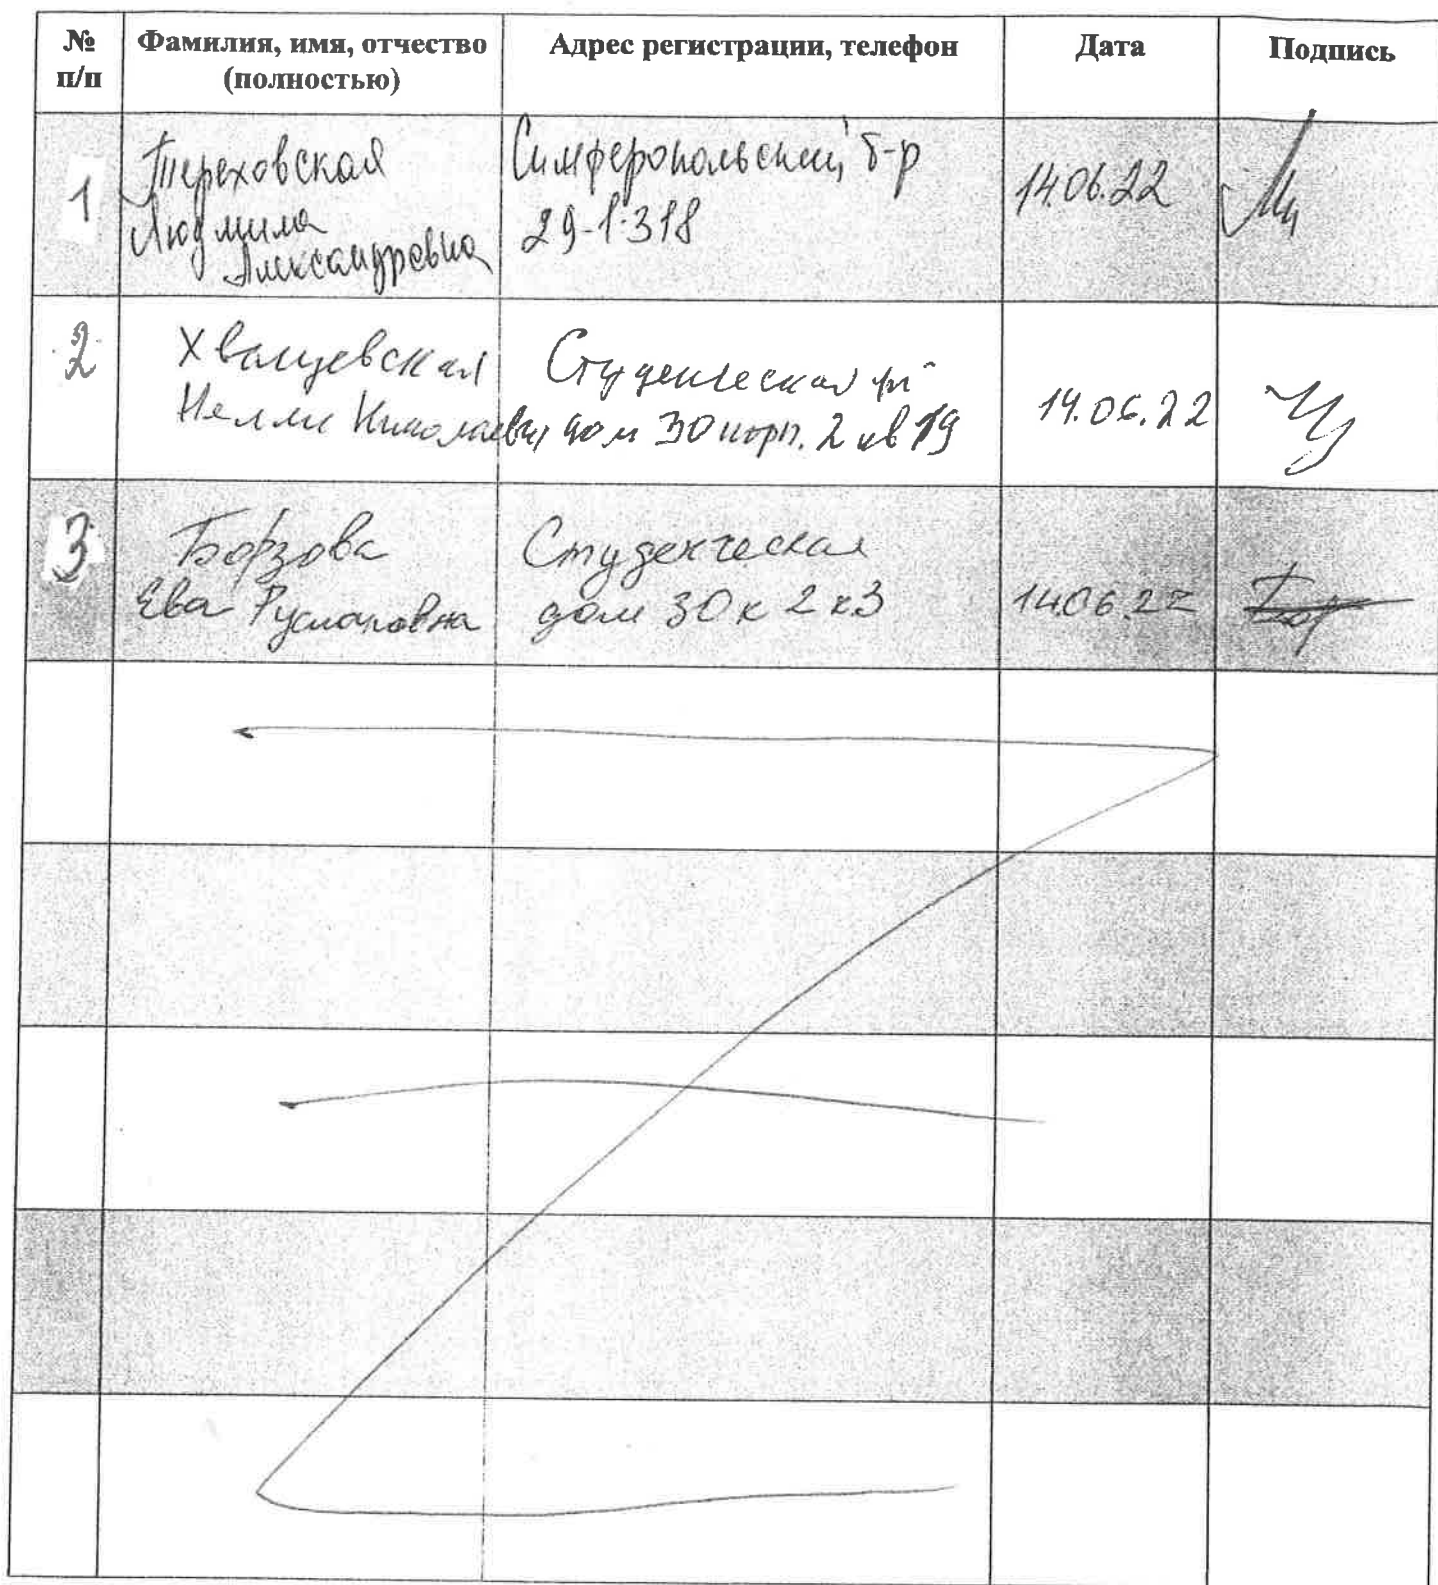 № п/п
Фамилия, имя, отчество (полностью)
Адрес регистрации, телефон
Дата
Подпись
1
Тереховская
Людмила
Александровна
Симферопольский б-р
29-1-318
14.06.22
2
Нелли Николаевна
Студенческая ул
дом 30 корп. 2 кв 19
14.06.22
3
Борзова
Ева Руслановна
Студенческая
дом 30 к 2 к3
14.06.22